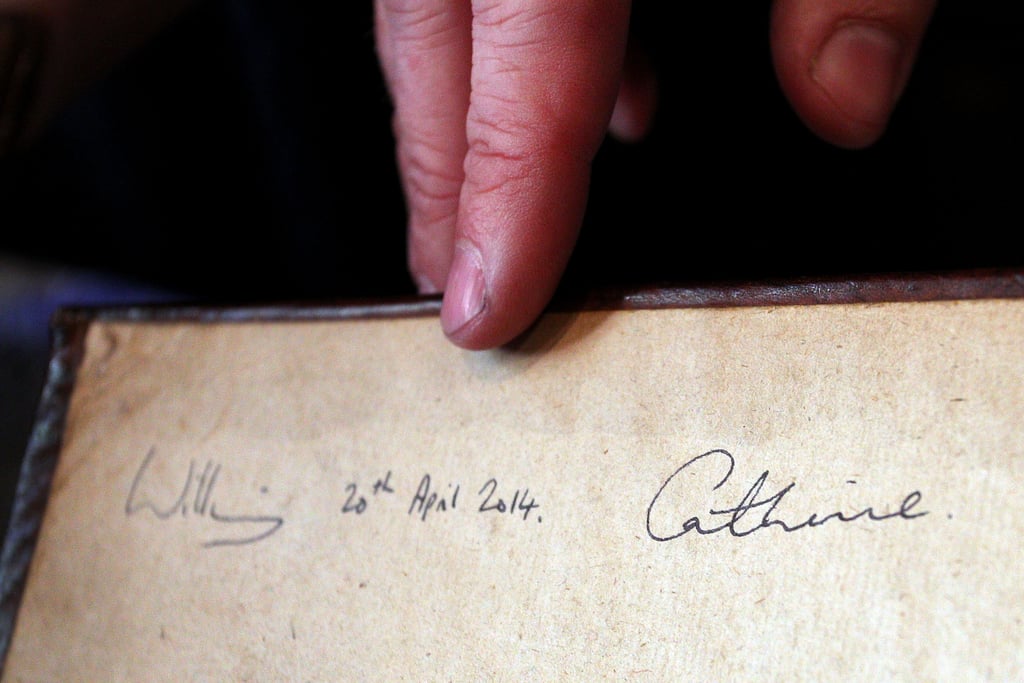 William 20th April 2014. Catherine.